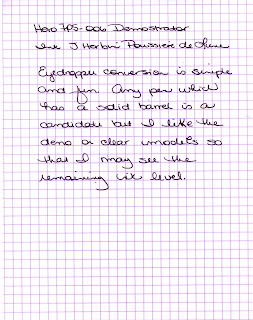 Hero 705-006 Demostrator
Ink J Herbin Poussière de Lune
Eyedropper conversion is simple
and fun. Any pen which
has a solid barrel is a
candidate but I like the
demo or clear models so
that I may see the
remaining ink level.